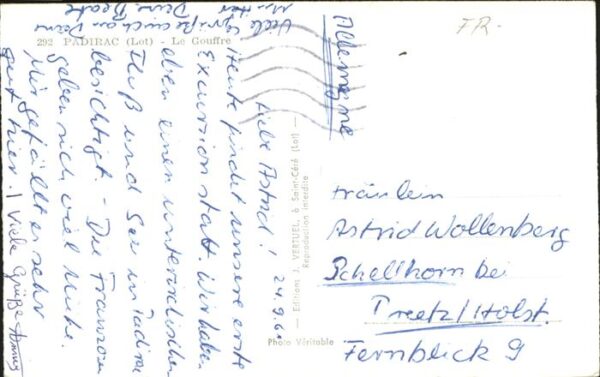 292 PADIRAC (Lot) — Le Gouffre
24.9.6
Liebe Astrid!
Heute findet unsere erste
Exkursion statt. Wir haben
eben einen unterirdischen
Fluß und See in Padirac
besichtigt. - Die Franzosen
geben sich viel Mühe.
Mir gefällt es sehr
gut hier. | Viele Grüße
Viele Grüße auch an Deine
Mutter Deine Beate
— Editions J. VERTUEL, à Saint-Céré (Lot) —
Reproduction interdite
Photo Véritable
FR.
Allemagne
Fräulein
Astrid Wollenberg
Schellhorn bei
Preetz/Holst.
Fernblick 9